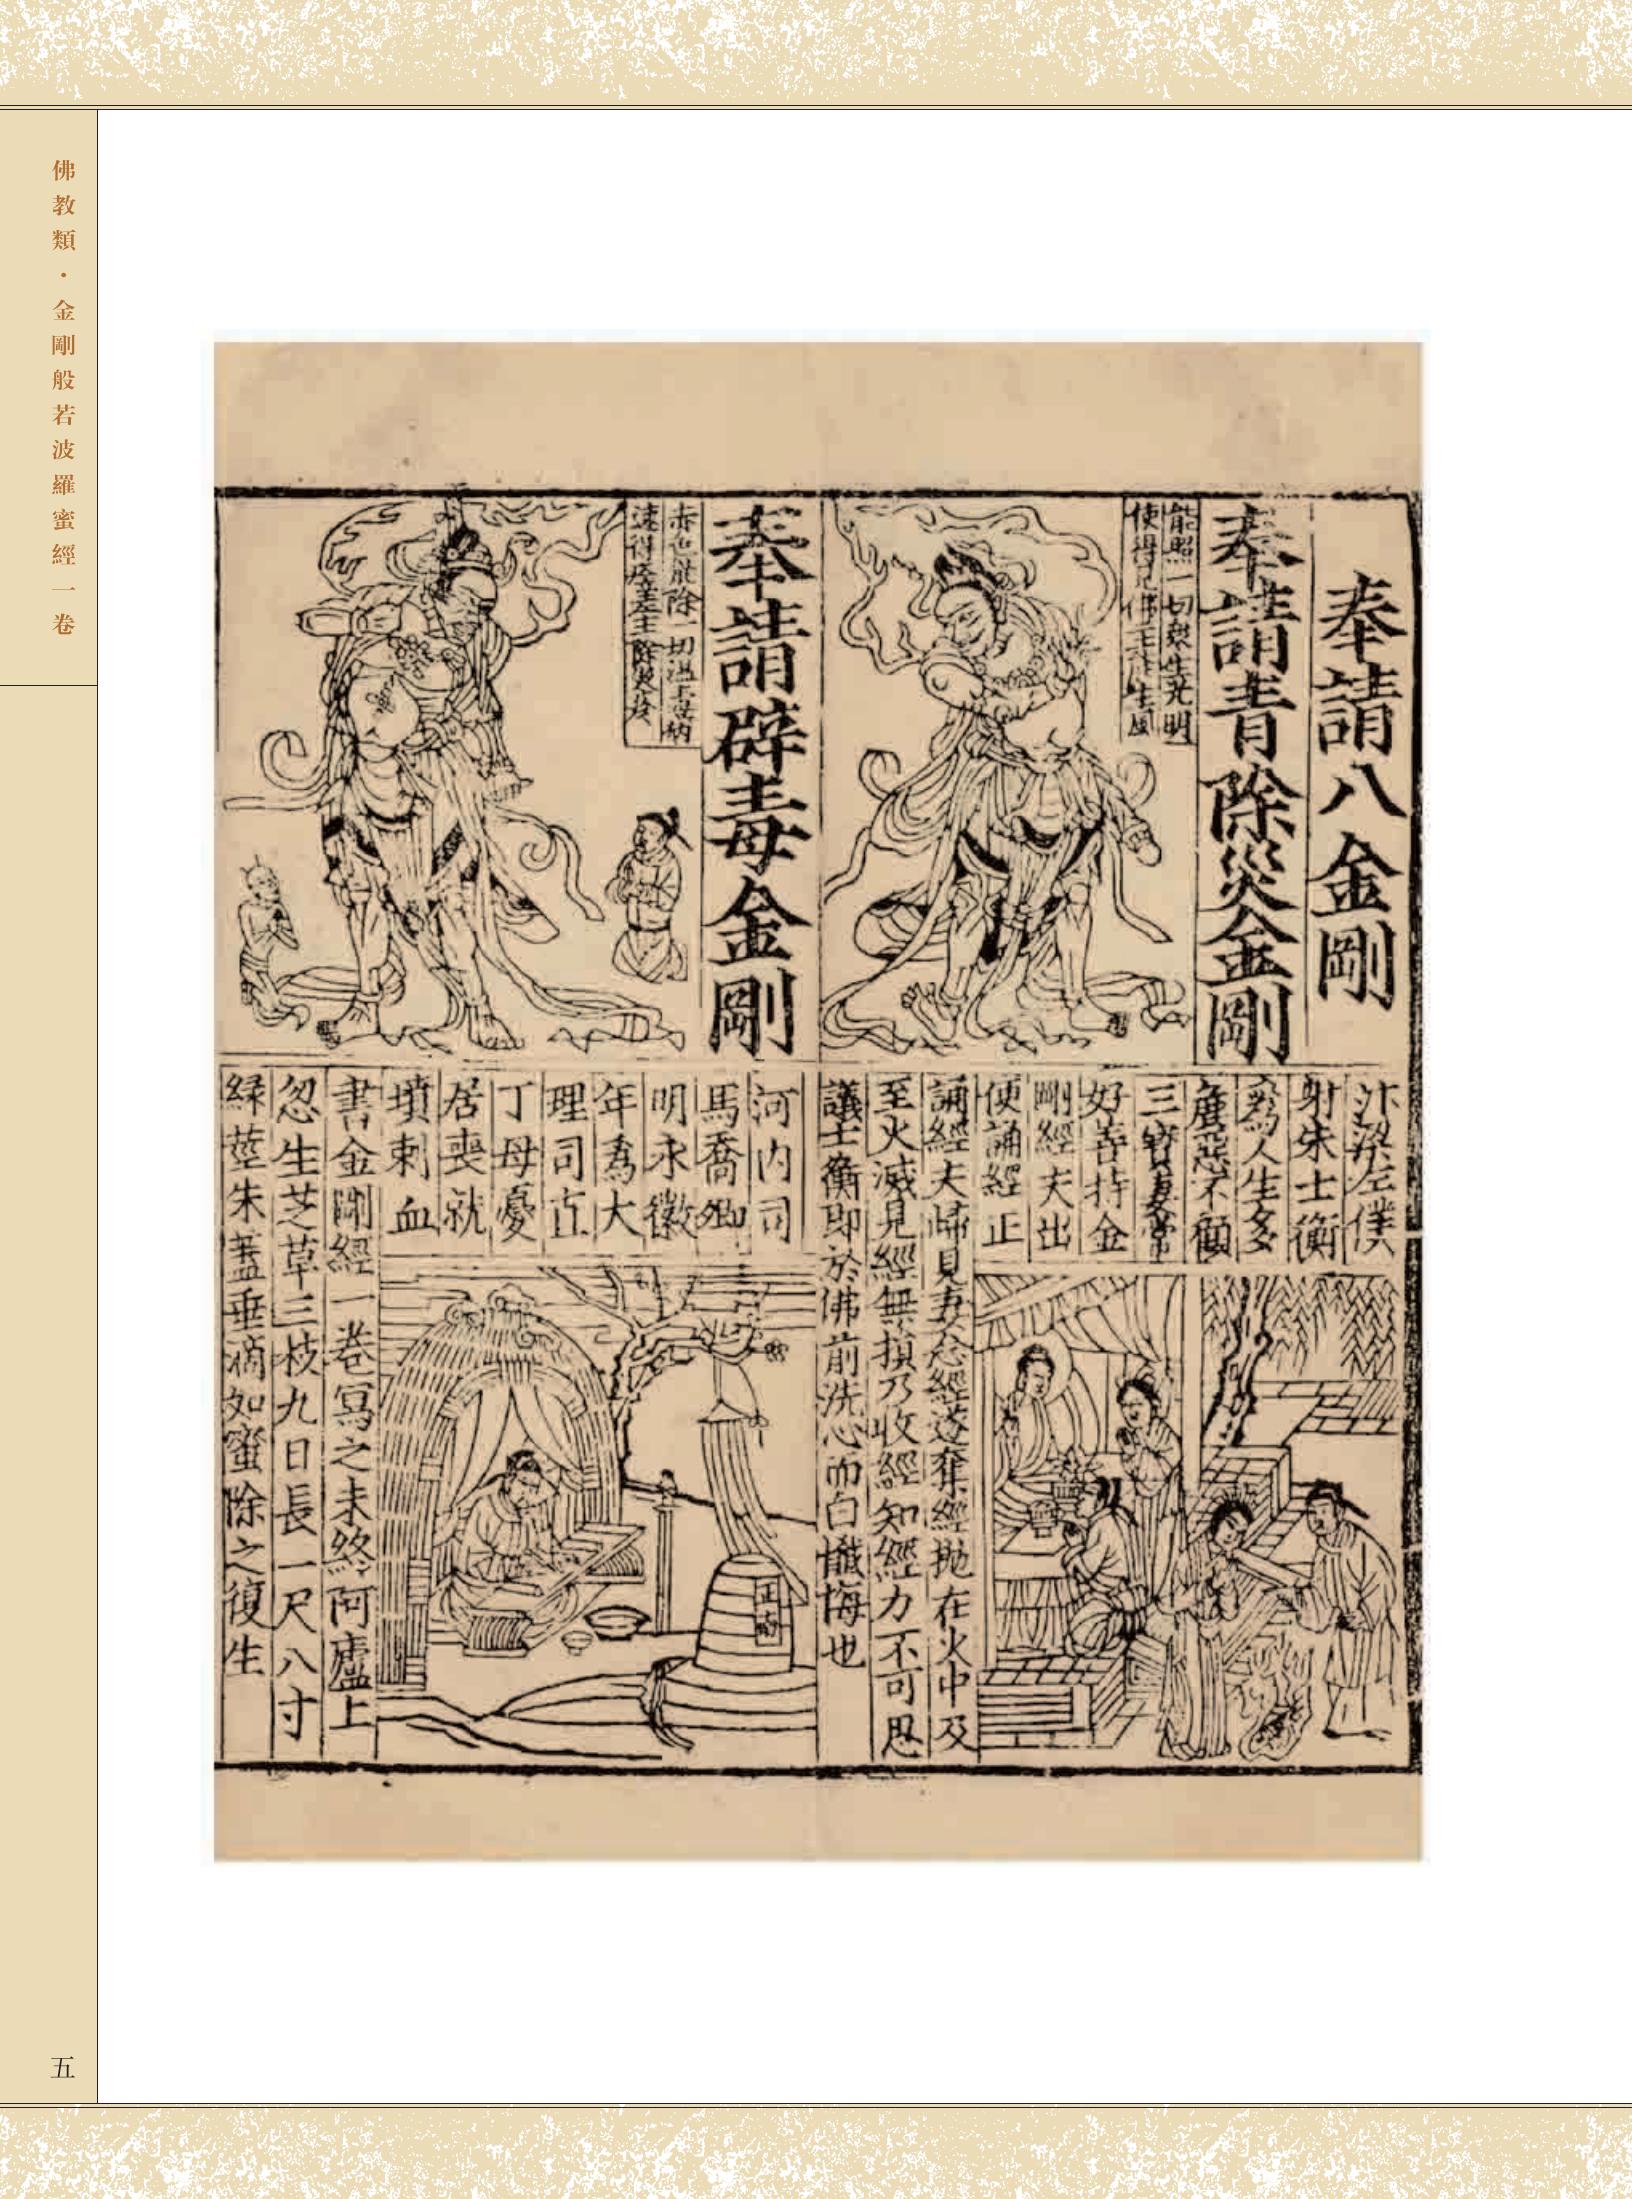 佛教類·金剛般若波羅蜜經一卷
奉請八金剛
奉請青除災金剛
能照一切衆生光明
奉請辟毒金剛
汴梁左僕
射朱士衡
爲人生多
麁惡不顧
三寶妻常
好善持金
剛經夫出
便誦經正
誦經夫歸見妻念經遂奪經拋在火中及
至火滅見經無損乃收經知經力不可思
議士衡即於佛前洗心而白懺悔也
河内司
馬喬卿
明永徽
年爲大
理司直
丁母憂
居喪就
墳刺血
書金剛經一卷寫之未終阿廬上
忽生芝草三枝九日長一尺八寸
緑莖朱蓋垂滴如蜜除之復生
五